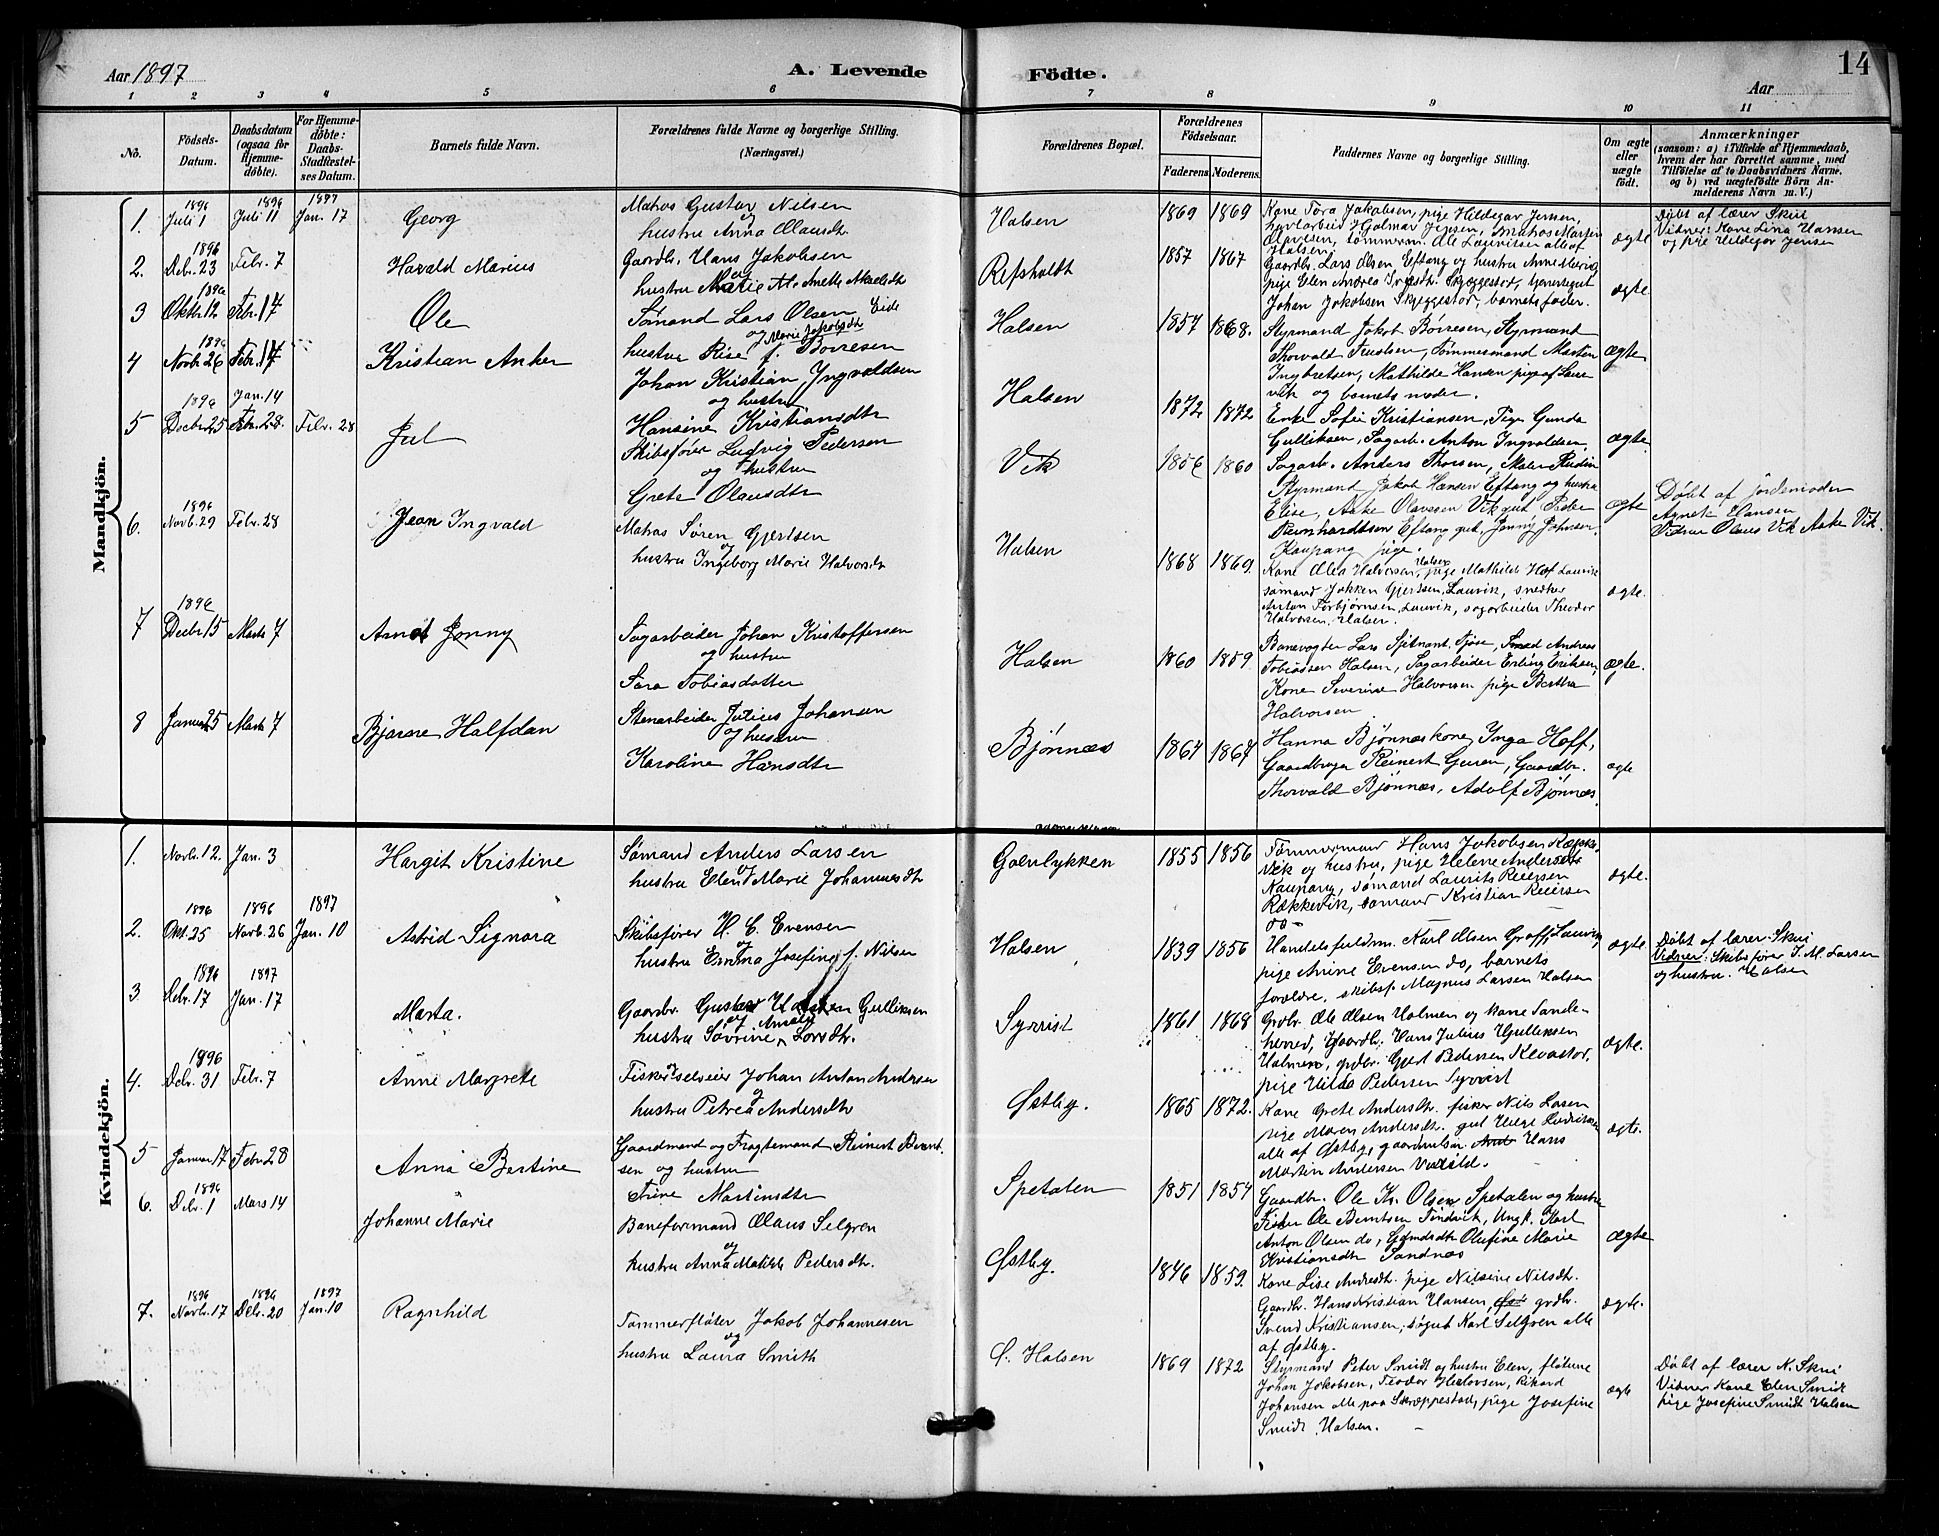 Aar 1897
A. Levende
Födte.
Aar
14
1 2 3 4 5 6 7 8 9 10 11
No.
Födsels-Datum.
Daabsdatum (ogsaa for Hjemme-döbte).
For Hjemme-döbte: Daabs-Stadfæstel-ses Datum.
Barnets fulde Navn.
Forældrenes fulde Navne og borgerlige Stilling.
(Næringsvei.)
Forældrenes Bopæl.
Forældrenes Födselsaar.
Faderens. Moderens.
Faddernes Navne og borgerlige Stilling.
Om ægte eller uægte födt.
Anmærkninger
(saasom: a) i Tilfælde af Hjemmedaab,
hvem der har forrettet samme, med
Tilföielse af to Daabsvidners Navne,
og b) ved uægtefödte Börn An-
melderens Navn m. V.)
Mandkjön.
1. 1896 Juli 1 1896 Juli 11 1897 Jan. 17 Georg
Matros Gustav Nilsen
og
hustru Anna Olausdtr.
Halsen 1869 1869
Kone Tora Jakobsen, pige Hildegar Jensen,
Hjalmar Jensen, Matros Morten
Olavesen, tømmerm. Ole Lauritsen alle af
Halsen
ægte
Døbt af lærer Skui
Vidner: Kone Lina Hansen
og pige Hildegar Jensen
2. 1896 Dcbr. 23 Febr. 7 Harald Marius
Gaardbr. Hans Jakobsen
og
hustru Marie
Refsholdt 1857 1867
Gaardbr. Lars Olsen, Eftang og hustru Anne Marie
pige Elen Andrea Skjeggestød,
Johan Jakobsen Skjeggestød, barnets fader.
ægte.
3 1896 Oktbr. 12 Febr. 14 Ole
Sømand Lars Olsen Eide
og Marie Jakobsdtr
hustru Rise f. Børresen
Halsen 1857 1868.
Styrmand Jakob Børresen, Styrmand
Thorvald Tømmesmand Marten
Ingbretsen, Mathilde Hansen pige af Laur-
vik og barnets moder.
ægte
4 1896 Novbr. 26 Febr. 14 Kristian Anker
Johan Kristian Ingvaldsen
og hustru
Hansine Kristiansdtr
Halsen 1872 1872
Enke Sofie Kristiansen, Pige Gunda
Gulliksen, Sagarb. Anton Ingvaldsen,
Sagarb. Anders Thorsen, Maler Rudin
ægte
5 1896 Decbr. 25 Jan. 14 Febr. 28. Febr. 28 Jul
Skibsfører Ludvig Pedersen
og hustru
Grete Olausdtr
Vik 1856 1860
Styrmand Jakob Hansen Eftang og hustru
Elise, Aske Olavesen Vik gut, Peder
Reinhardtsen Eftang gut, Jenny Johnsen
Kaupang pige.
ægte
Døbt af jordemoder
Agnete Hansen
Vidner Olaus Vik Aske Vik.
6. 1896 Novbr. 29 Febr. 28 Jean Ingvald
Matros Søren Gjertsen
og
hustru Ingeborg Marie Halvorsdtr
Halsen 1868 1869.
Kone Olea Halvorsen, Halsen pige Mathilde Hof Laurvik
sømand Jakken Gjertsen, Laurvik, snedker
Anton Torbjørnsen, Laurvik, sagarbeider Theodor
Halvorsen, Halsen.
ægte.
7 1896 Decbr. 15 Marts 7 Arnot Jonny
Sagarbeider Johan Kristoffersen
og hustru
Sara Tobiasdatter
Halsen 1860 1859.
Banevogter Lars Spitnant, Tjøse, Smed Andreas
Tobiassen Halsen, Sagarbeider Erling Eriksen,
Kone Severine Halvorsen, pige Bertha
Halvorsen
ægte.
8 Januar 25 Marts 7 Bjarne Halfdan
Stenarbeider Julius Johansen
og hustru
Karoline Hansdtr
Bjønnæs 1864 1867
Hanna Bjønnæs kone, Inga Hoff,
Gaardbruger Reinert Guren, Gaardbr.
Thorvald Bjønnæs, Adolf Bjønnæs.
ægte
Kvindekjön.
1. Novbr. 12. Jan. 3 Hargit Kristine
Sømand Anders Larsen
og
hustru Elen Marie Johannesdtr
Golenlykken 1855 1856
Tømmermand Hans Jakobsen Række-
vik og hustru, pige Helene Andersdtr
Kaupang, sømand Laurits Reiersen
Rækkevik, sømand Kristian Reiersen
do -
ægte.
2. 1896 Okt. 25 1896 Novb. 26 1897 Jan. 10 Astrid Signora
Skibsfører H. C. Evensen
og
hustru Emma Josefine f. Nilsen
Halsen 1839 1856
Handelsfuldm. Karl Olsen Groff, Laurvig
pige Anine Evensen do, barnets
forældre, skibsf. Magnus Larsen Halsen
ægte
Døbt af lærer Skui
Vidner: Skibsfører J. M. Larsen
og hustru. Halsen
3. 1896 Dcbr. 17 1897 Jan. 17 Marta.
Gaardbr. Gustav Gulliksen
og Amalie
hustru Sørine Larsdtr.
Syrrist 1861 1868
Grdbr. Ole Olsen Holmen og kone Sande-
herred, Gaardbr. Hans Julius Gulliksen
Holmen, grdbr. Gjert Pedersen Klevastor,
pige Hilda Pedersen Syrrist
ægte.
4. 1896 Dcbr. 31 Febr. 7 Anne Margrete
Fisker Selveier Johan Anton Andersen
og
hustru Petrea Andersdtr
Østby. 1865 1872.
Kone Grete Andersdtr. fisker Nils Larsen
pige Maren Andersdtr. gut Helge
alle af Østby, Hans
Martin Andersen
ægte.
5 Januar 17 Febr. 28 Anna Bertine
Gaardmand og Fragtemand Reinert Bernt-
sen og hustru
Trine Martinsdtr
Spetalen 1851 1854
Gaardbr. Ole Kr. Olsen Spetalen og hustru
Fisker Ole Berntsen Tindvik, Ungk. Karl
Anton Olsen do, Gdmdsdtr Olufine Marie
Kristiansdtr Sandnæs
ægte
6. 1896 Dcbr. 1 Mars 14 Johanne Marie
Baneformand Olaus Selgren
og
hustru Anna Matilde Pedersdtr.
Østby. 1846 1859.
Kone Lise Andersdtr. pige Nilsine Nilsdtr.
Gaardbr. Hans Kristian Hansen, grdbr.
Svend Kristiansen, Karl Selgren alle
af Østby.
ægte.
7. 1896 Novbr. 17 1896 Dcbr. 20 1897 Jan. 10 Ragnhild
Tømmerfløter Jakob Johannesen
og
hustru Laura Smith
S. Halsen 1869 1872
Styrmand Peter Smidt og hustru Elen, fløterne
Johan Jakobsen, Teodor Rikard
Johansen alle paa Skreppestad, pige Josefine
Smidt, Halsen.
ægte
Døbt af lærer N. Skui
Vidner Kone Elen Smidt
pige Josefine Smidt Halsen